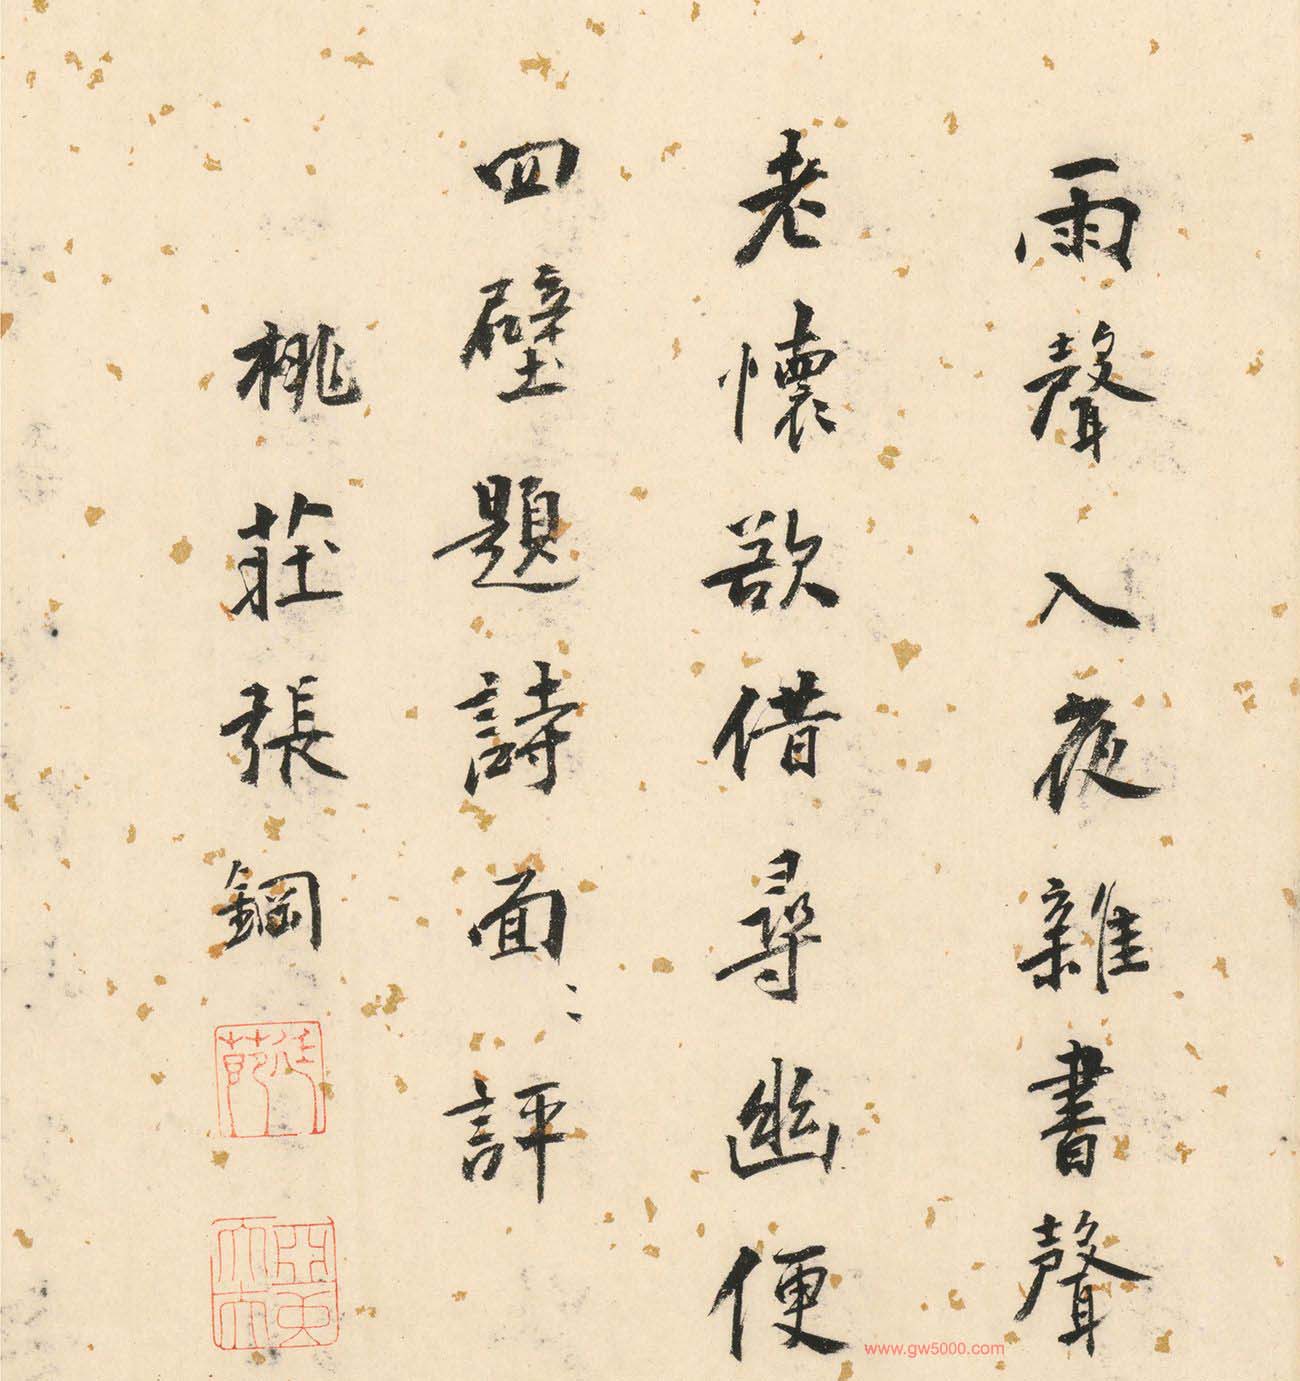 雨聲入夜雜書聲
老懷欲借尋幽便
四壁題詩面〻評
桃莊張鋼
www.gw5000.com